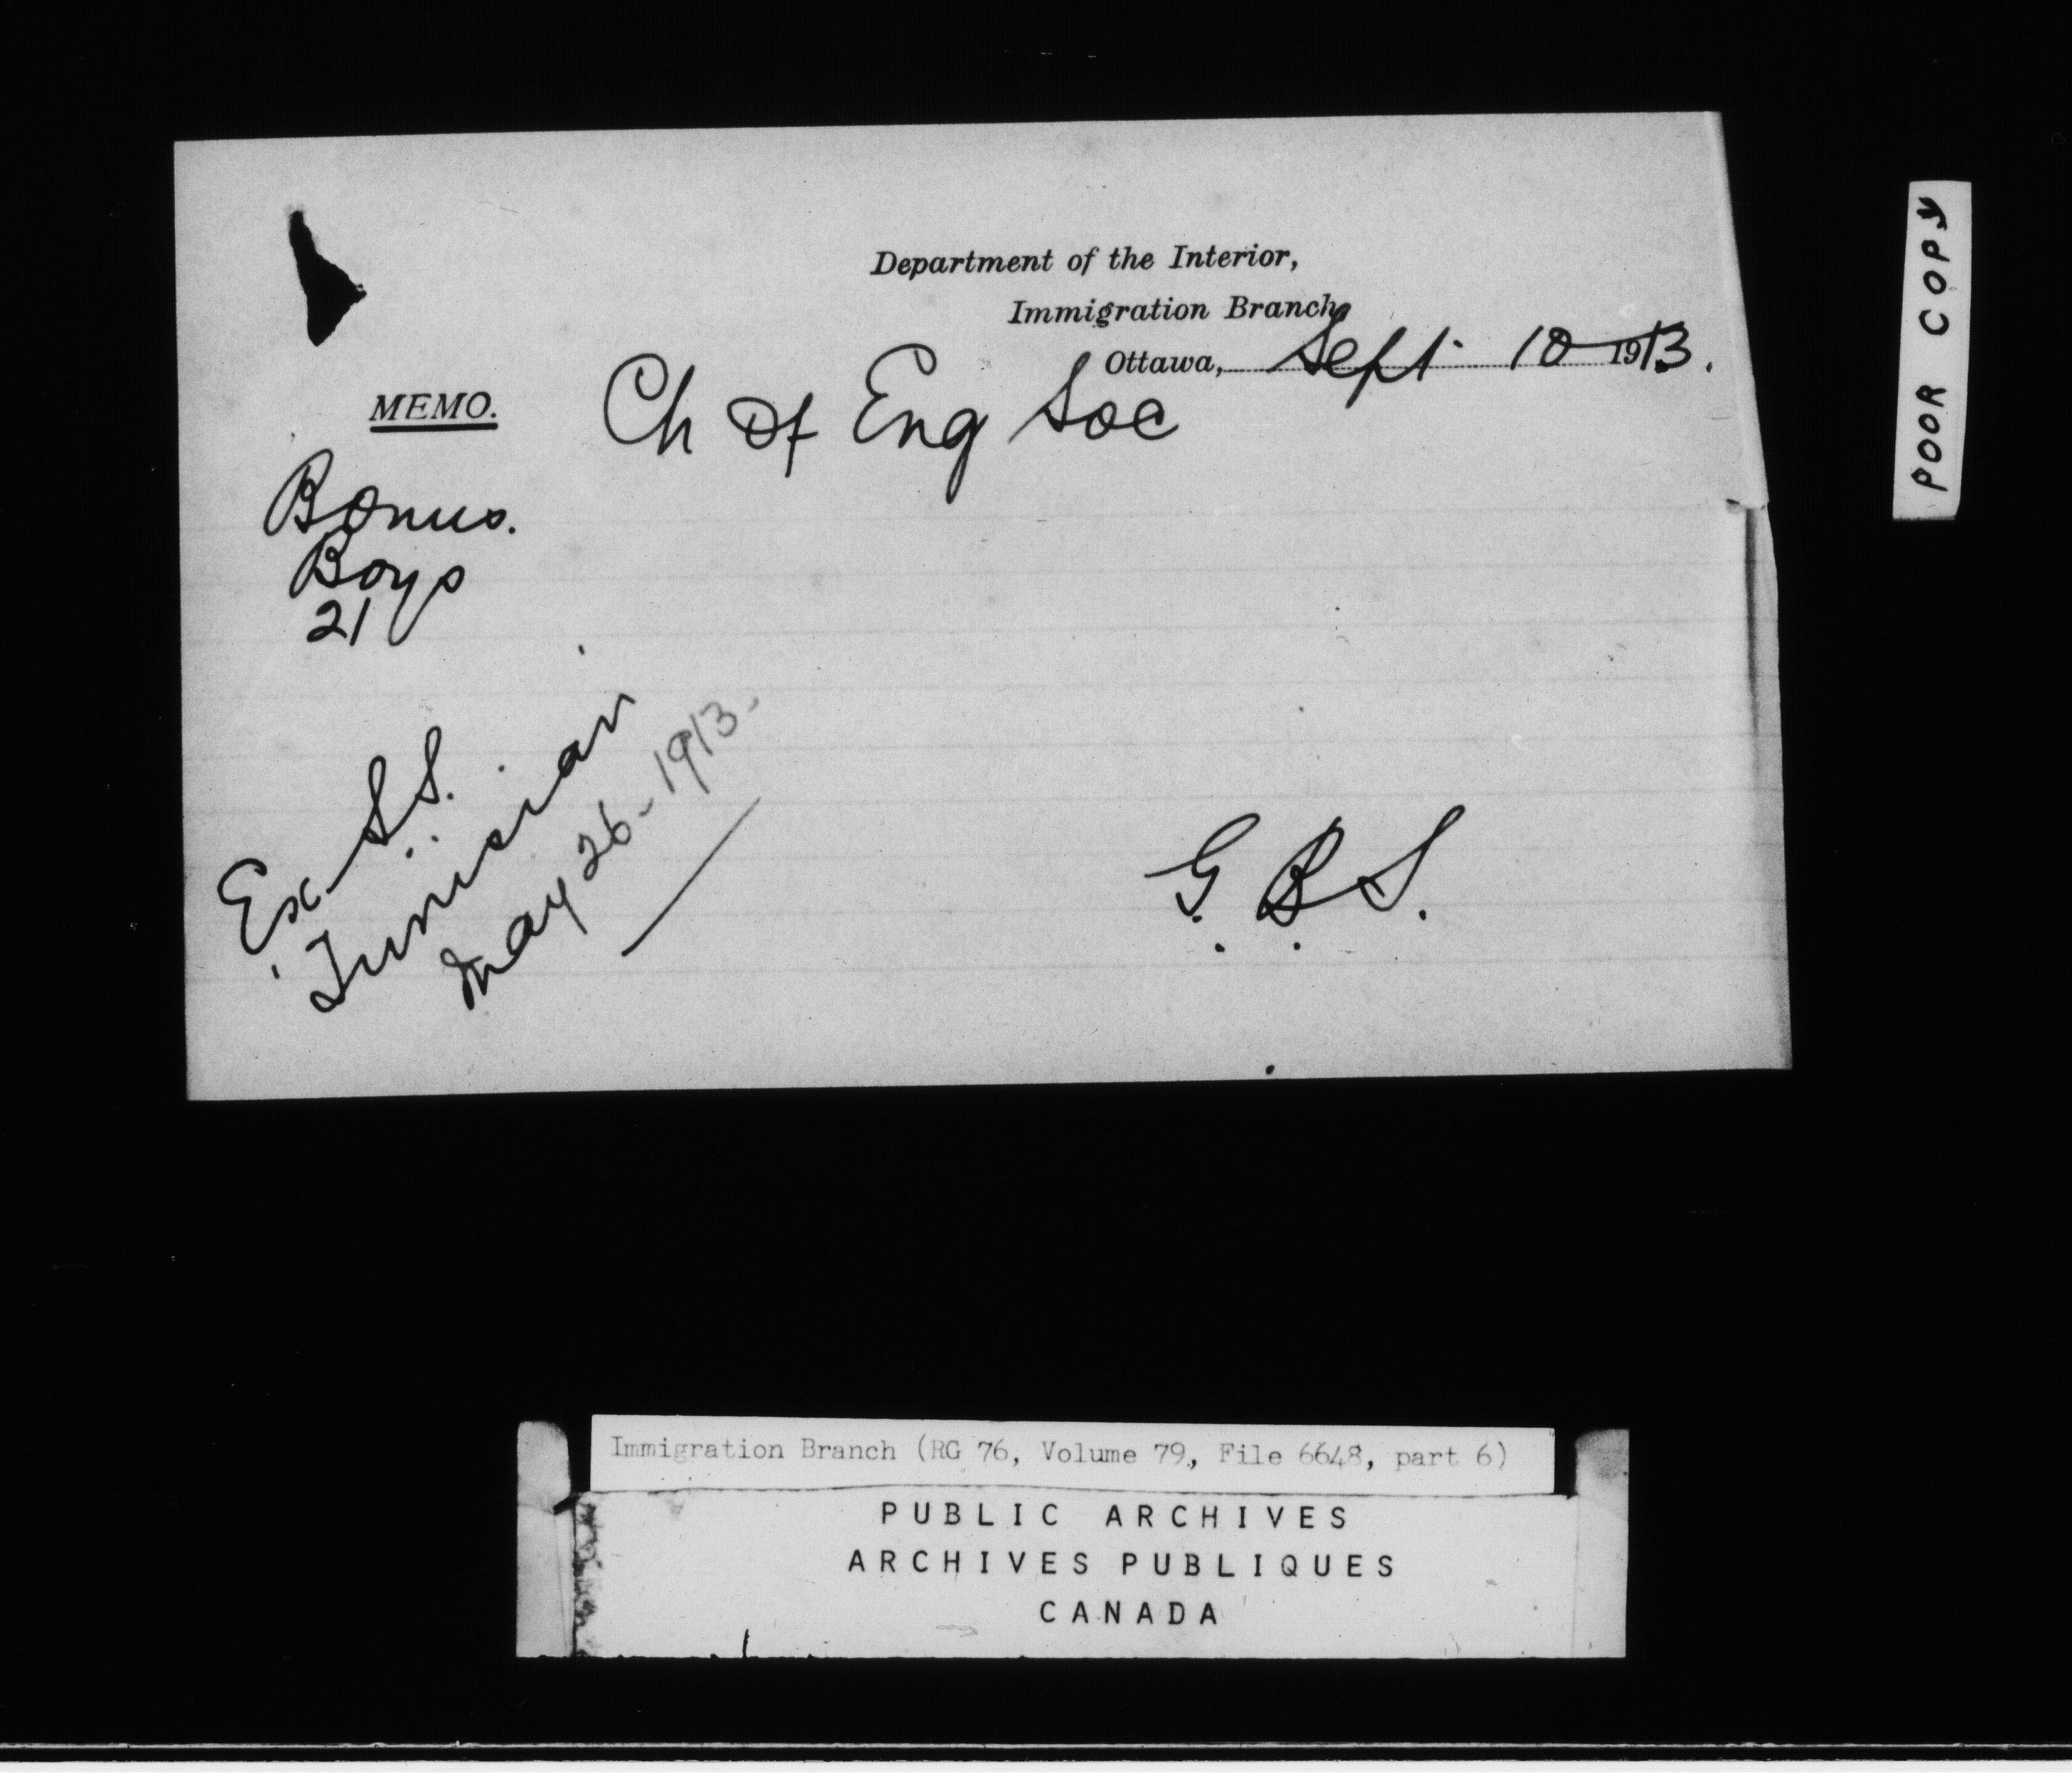 Department of the Interior,
Immigration Branch,
Ottawa, Sept. 10 1913.
MEMO.
Ch Of Eng Soc
Bonus.
Boys
21
Ex S.S.
Tunisian
May 26-1913-
G.B.S.
POOR COPY
Immigration Branch (RG 76, Volume 79, File 6648, part 6)
PUBLIC ARCHIVES
ARCHIVES PUBLIQUES
CANADA